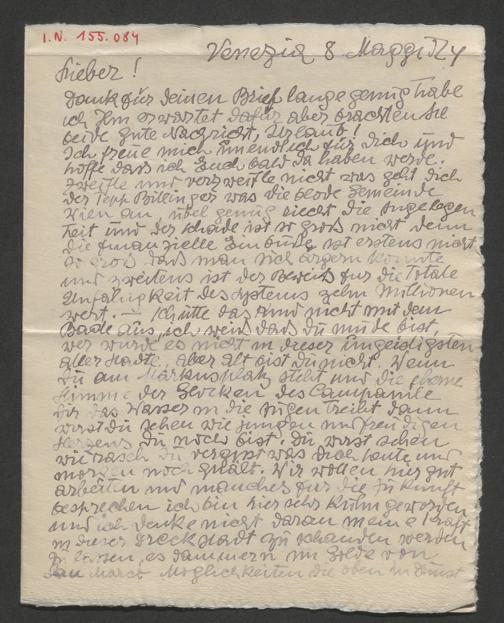 I.N. 155.084
Venezia 8 Maggio 24
Lieber!
Dank für deinen Brief lange genug habe
ich ihn erwartet dafür aber brachten Sie
beide gute Nachricht, Urlaub!
Ich freue mich unendlich für dich und
hoffe dass ich Euch bald da haben werde.
zweifle und verzweifle nicht was geht dich
der Tepp Billinger was die blöde Gemeinde
Wien an, übel genug riecht die Angelegen
heit und der Schade ist so gross nicht denn
die finanzielle Einbusse ist erstens nicht
so gross dass man sich ärgern könnte
und zweitens ist der Beweis für die totale
Unfähigkeit des Systems zehn Millionen
wert. — Schütte das Kind nicht mit dem
Bade aus, ich weiss dass du müde bist,
wer wurde es nicht in dieser ungeistigsten
aller Städte, aber alt bist du nicht. Wenn
du am Markusplatz stehst und die eherne
Stimme der Glocken des Campanile
dir das Wasser in die Augen treibt dann
wirst du sehen wie jungen und freudigen
Herzens du noch bist. Du wirst sehen
wie rasch du vergisst was dich heute und
morgen noch quält. Wir wollen hier gut
arbeiten und manches für die Zukunft
besprechen ich bin hier sehr kühn geworden
und ich denke nicht daran meine Kraft
in dieser Dreckstadt zu schanden werden
zu lassen, es dämmern im Golde von
San Marco Möglichkeiten die oben im Dunst